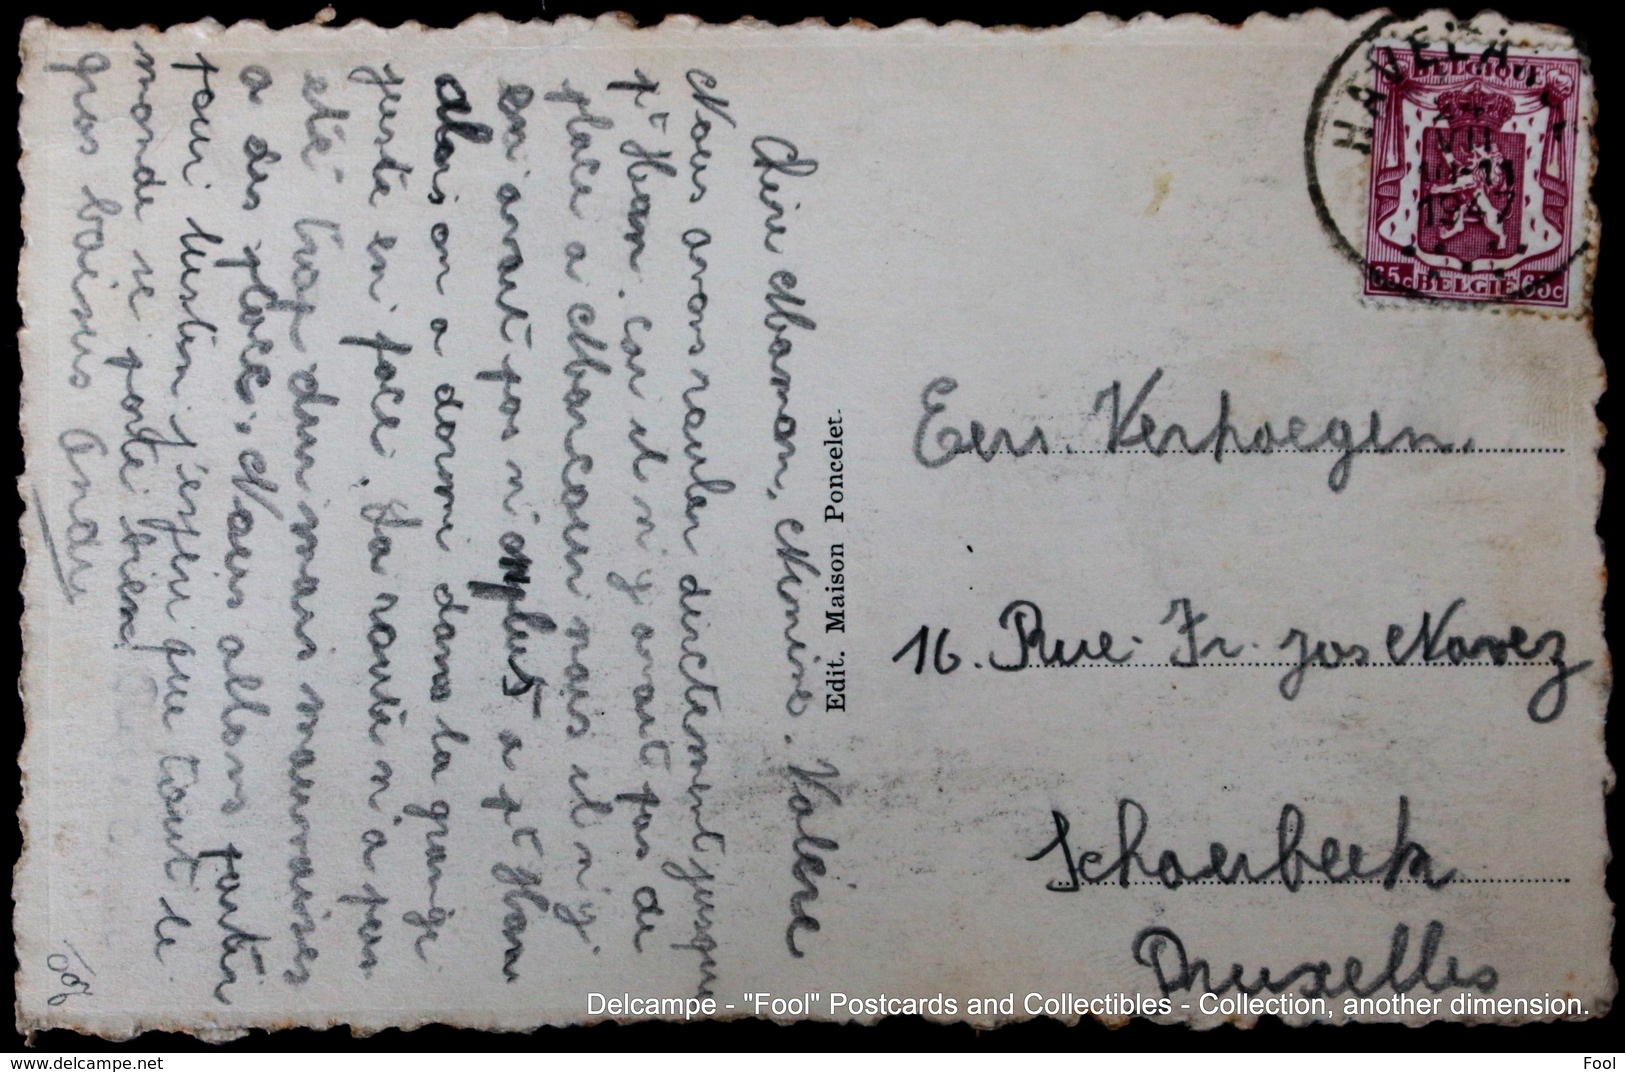 Chère Maman, Mimine. Valère
Nous avons rouler directement jusque
pt Han. car il n'y avait pas de
place a Abancour mais il n'y
en avait pas n' plus a pt Han
alors on a dormi dans la grange
juste en face. La route n'a pas
été trop dur mais mauvaises
a des place. Nous allons partir
pour lustin j'espeu que tout le
monde se porte bien.
gros baisers André
Edit. Maison Poncelet.
HAVELA
24
VII
10-11
1947
BELGIQUE
65c BELGIË 65c
Eers. Verhoegen.
16. Rue. Fr. Jos Navez
Schaerbeek
Bruxelles
Delcampe - "Fool" Postcards and Collectibles - Collection, another dimension.
delcampe.net
Fool